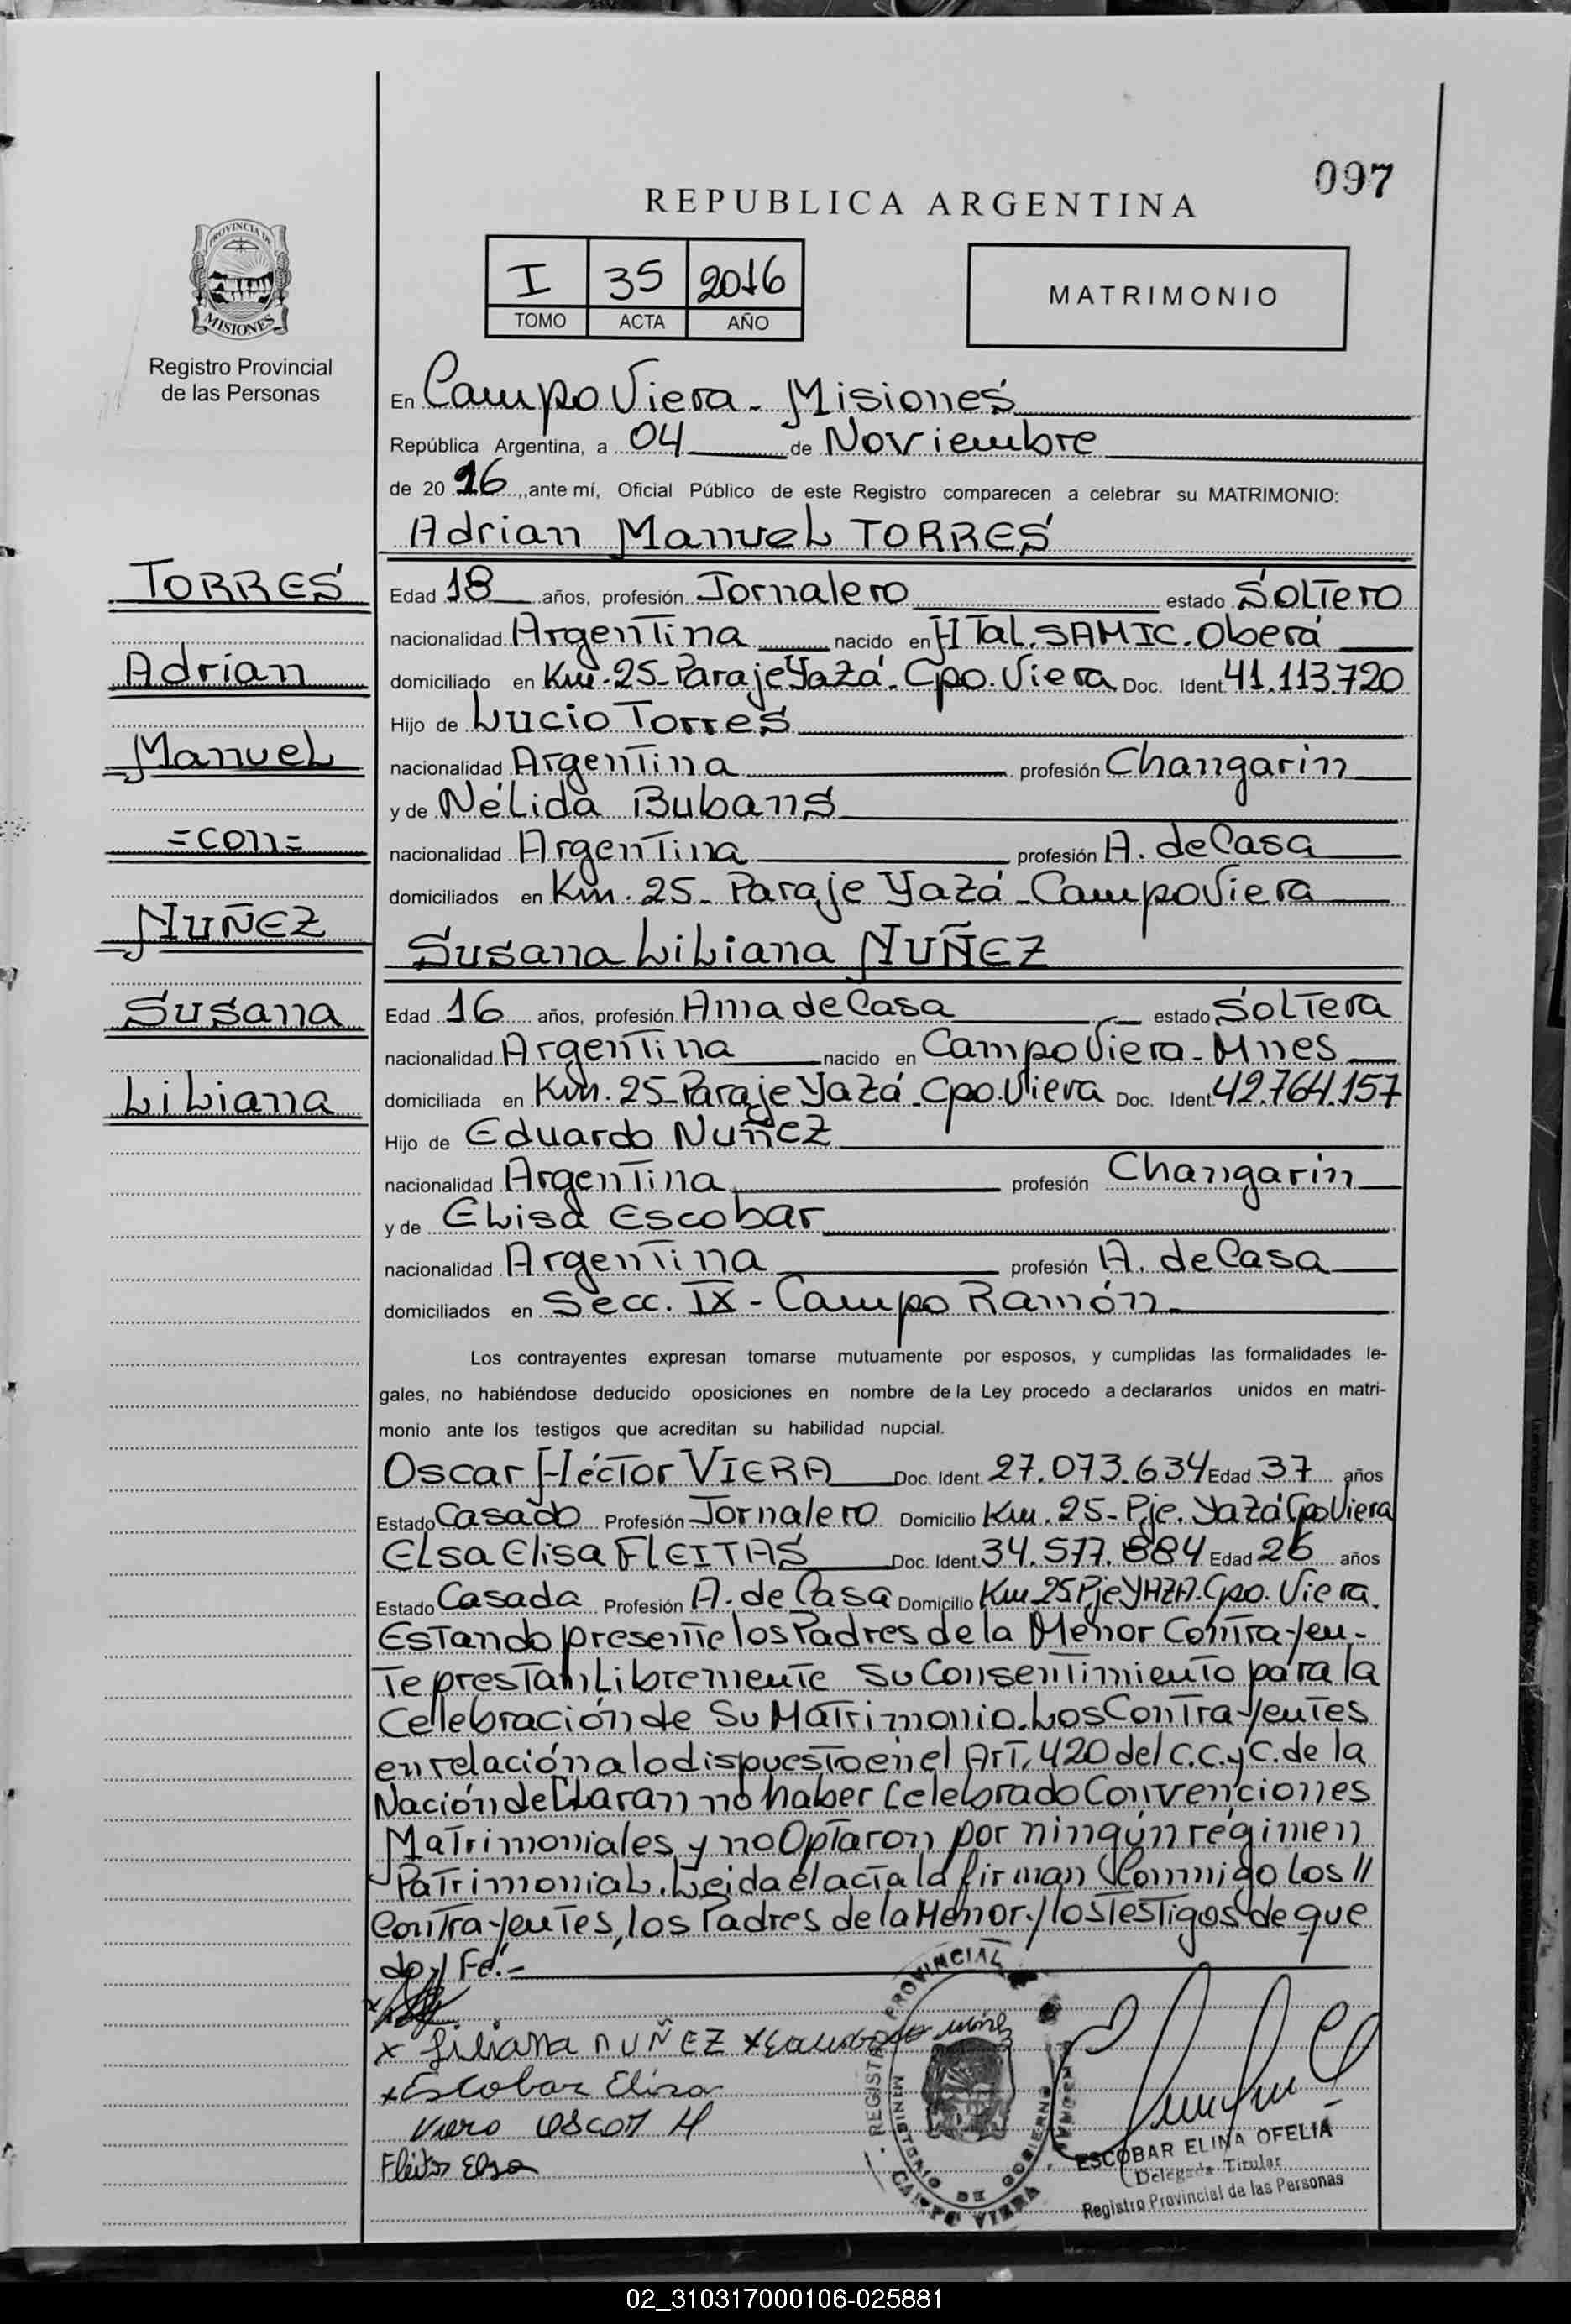 097
REPUBLICA ARGENTINA
I 35 2016
TOMO ACTA AÑO
MATRIMONIO
PROVINCIA DE
MISIONES
Registro Provincial
de las Personas
En Campo Viera - Misiones
República Argentina, a 04 de Noviembre
de 20 16, ante mí, Oficial Público de este Registro comparecen a celebrar su MATRIMONIO:
Adrian Manuel TORRES
TORRES
Adrian
Manuel
=con=
NUÑEZ
Susana
Liliana
Edad 18 años, profesión Jornalero estado Soltero
nacionalidad Argentina nacido en HTal. SAMIC. Oberá
domiciliado en Km. 25 - Paraje Yazá - Cpo. Viera Doc. Ident. 41.113.720
Hijo de Lucio Torres
nacionalidad Argentina profesión Changarin
y de Nélida Bubans
nacionalidad Argentina profesión A. de Casa
domiciliados en Km. 25 - Paraje Yazá - Campo Viera
Susana Liliana NUÑEZ
Edad 16 años, profesión Ama de Casa estado Soltera
nacionalidad Argentina nacido en Campo Viera - Mnes
domiciliada en Km. 25 - Paraje Yazá - Cpo. Viera Doc. Ident. 42.764.157
Hijo de Eduardo Nuñez
nacionalidad Argentina profesión Changarin
y de Elisa Escobar
nacionalidad Argentina profesión A. de Casa
domiciliados en Secc. IX - Campo Ramón
Los contrayentes expresan tomarse mutuamente por esposos, y cumplidas las formalidades le-
gales, no habiéndose deducido oposiciones en nombre de la Ley procedo a declararlos unidos en matri-
monio ante los testigos que acreditan su habilidad nupcial.
Oscar Héctor VIERA Doc. Ident. 27.073.634 Edad 37 años
Estado Casado Profesión Jornalero Domicilio Km. 25 - Pje. Yazá Cpo Viera
Elsa Elisa FLEITAS Doc. Ident. 34.577.884 Edad 26 años
Estado Casada Profesión A. de Casa Domicilio Km 25 Pje YAZA. Cpo. Viera.
Estando presente los Padres de la Menor Contrayen-
te prestan Libremente su Consentimiento para la
Celebración de Su Matrimonio. Los Contrayentes
en relación a lo dispuesto en el Art. 420 del C.C. y C. de la
Nación declaran no haber Celebrado Convenciones
Matrimoniales y no Optaron por ningún régimen
Patrimonial. Leida el acta la firman Conmigo los //
contrayentes, los Padres de la Menor y los Testigos de que
doy Fé.-
x Liliana NUÑEZ x Eduardo Nuñez
x Escobar Elisa
Viera Oscar H
Fleitas Elsa
REGISTRO PROVINCIAL DE LAS PERSONAS
MINISTERIO DE GOBIERNO
CAMPO VIERA
ESCOBAR ELINA OFELIA
Delegada Titular
Registro Provincial de las Personas
02_310317000106-025881